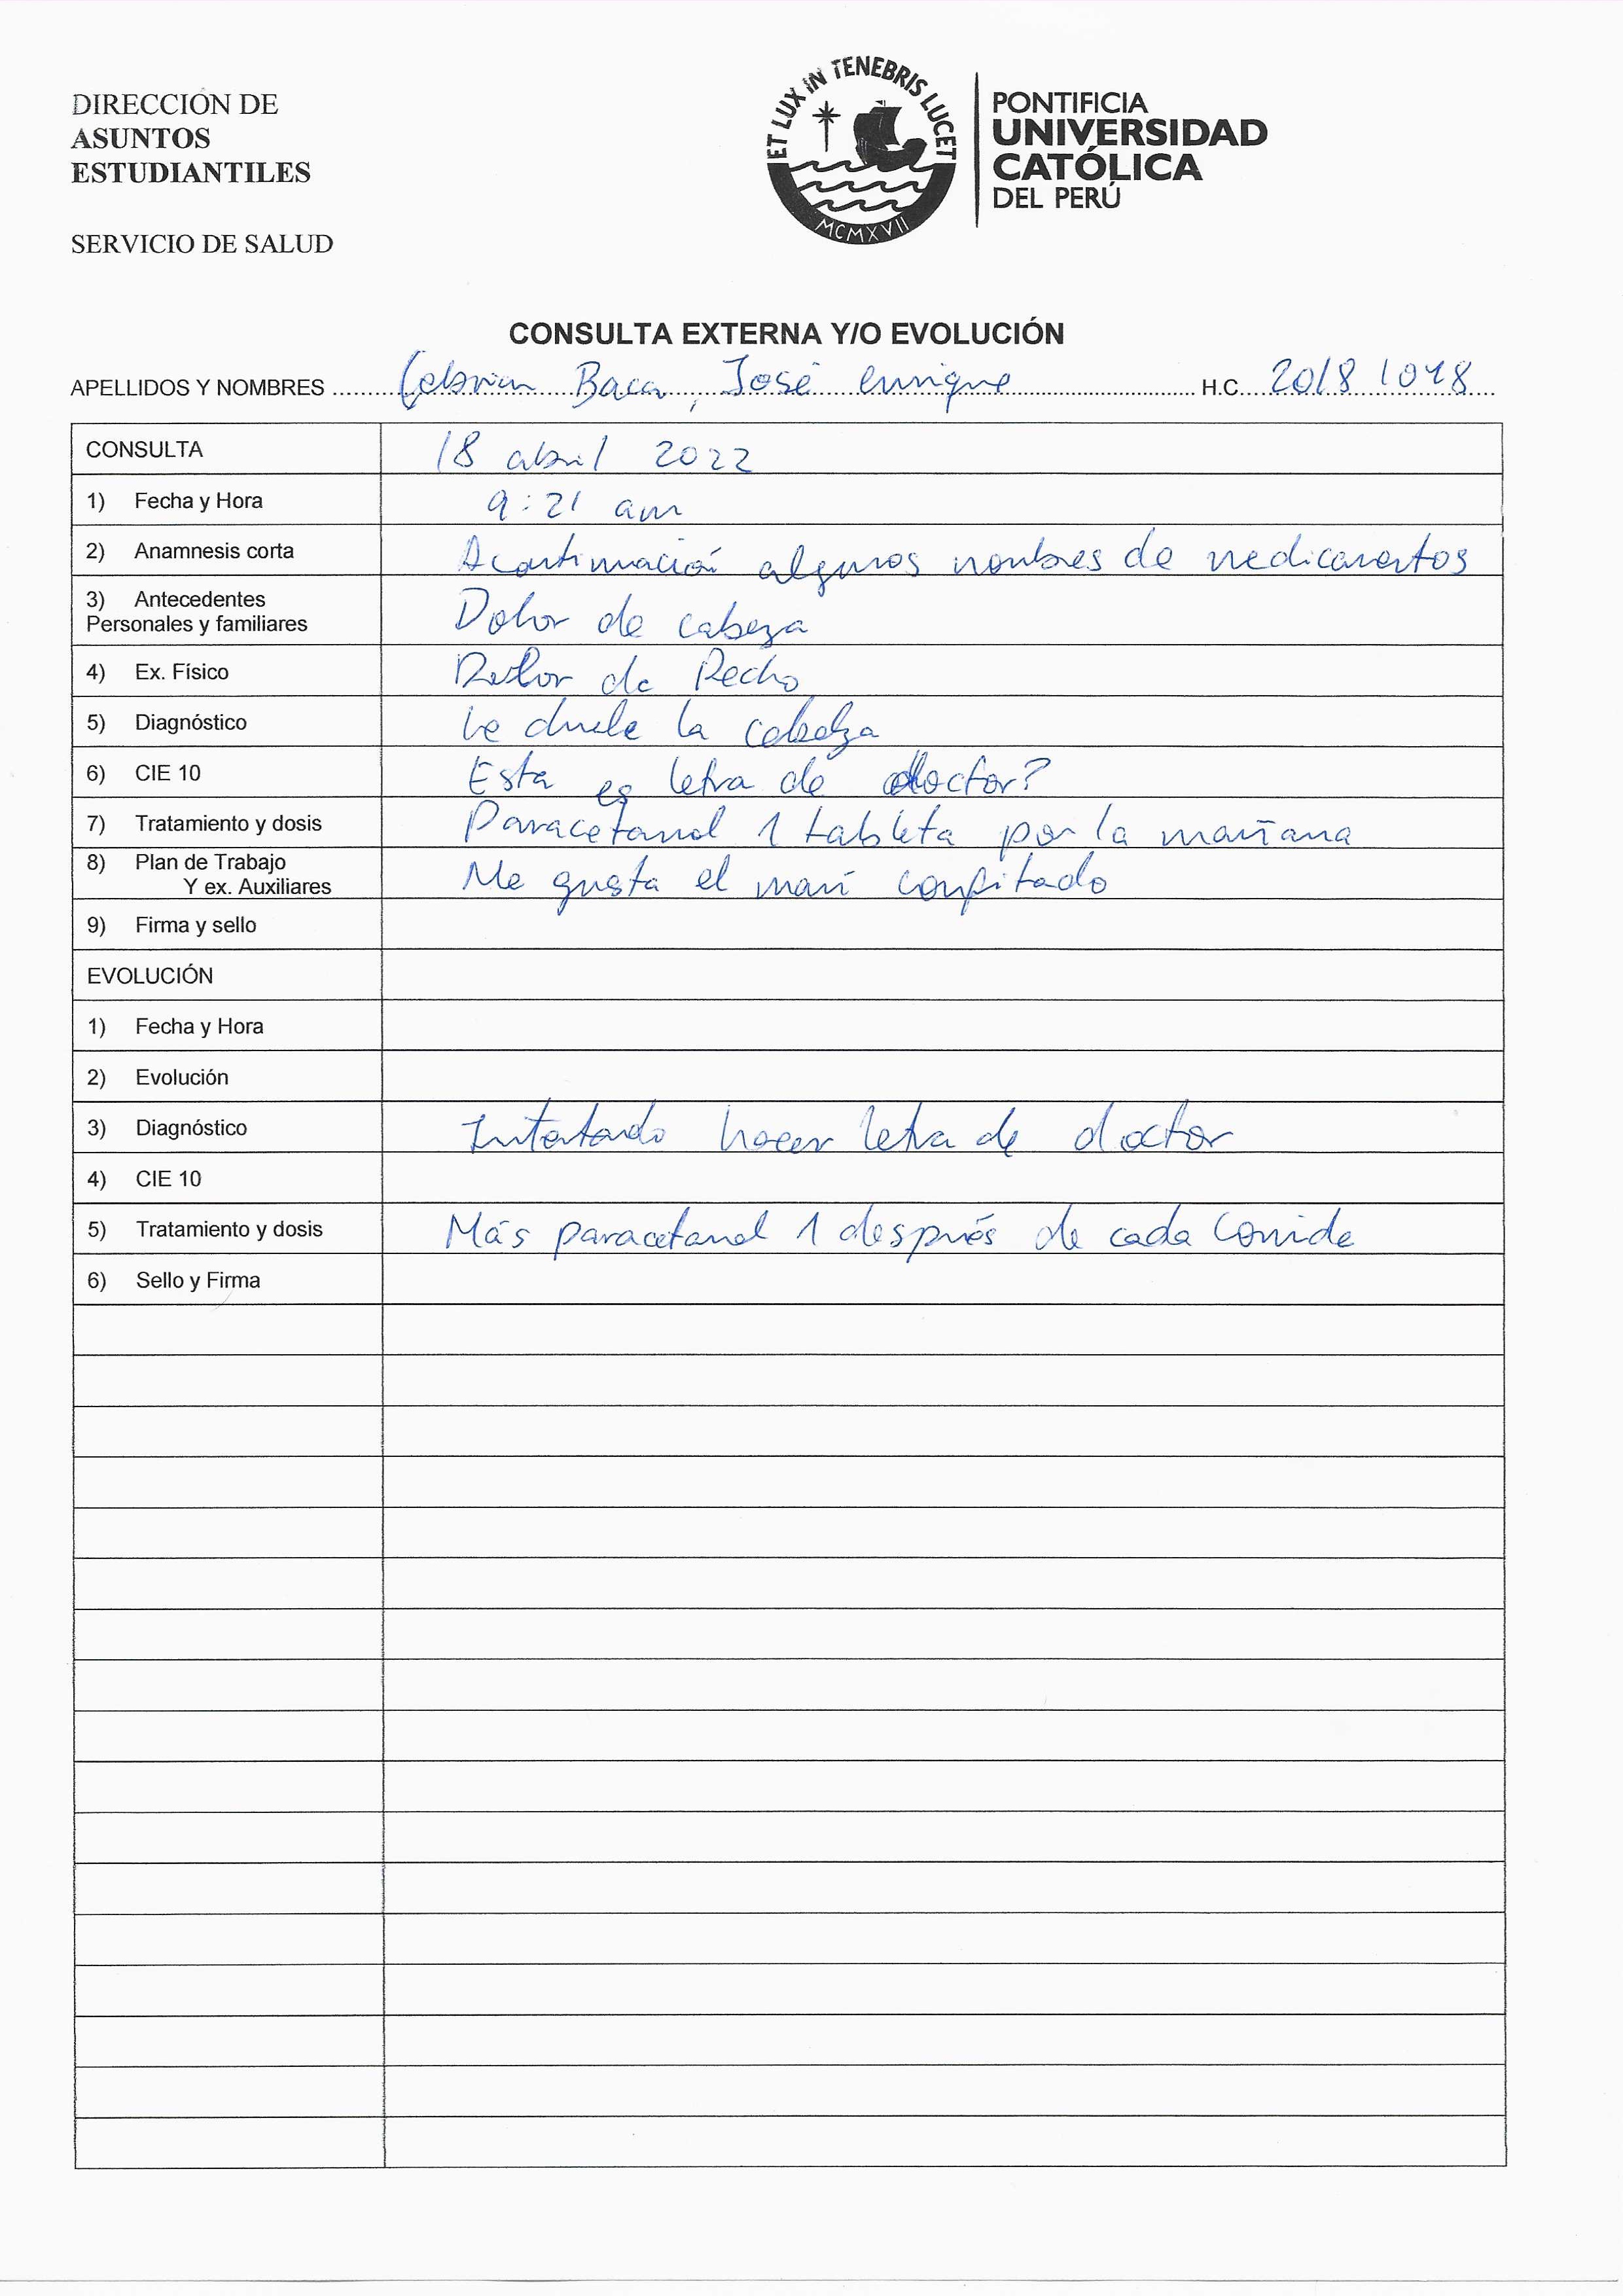 DIRECCIÓN DE
ASUNTOS
ESTUDIANTILES
SERVICIO DE SALUD
ET LUX IN TENEBRIS LUCET
MCMXVII
PONTIFICIA
UNIVERSIDAD
CATÓLICA
DEL PERÚ
CONSULTA EXTERNA Y/O EVOLUCIÓN
APELLIDOS Y NOMBRES Cebrian Baca, José enrique H.C. 2018
CONSULTA 18 abril 2022
1) Fecha y Hora 9:21 am
2) Anamnesis corta Acontinuación algunos nombres de medicamentos
3) Antecedentes
Personales y familiares Dolor de cabeza
4) Ex. Físico Dolor de Pecho
5) Diagnóstico Le duele la cabeza
6) CIE 10 Esta es letra de doctor?
7) Tratamiento y dosis Paracetamol 1 tableta por la mañana
8) Plan de Trabajo
Y ex. Auxiliares Me gusta el maní confitado
9) Firma y sello
EVOLUCIÓN
1) Fecha y Hora
2) Evolución
3) Diagnóstico Intentando hacer letra de doctor
4) CIE 10
5) Tratamiento y dosis Más paracetamol 1 después de cada comida
6) Sello y Firma